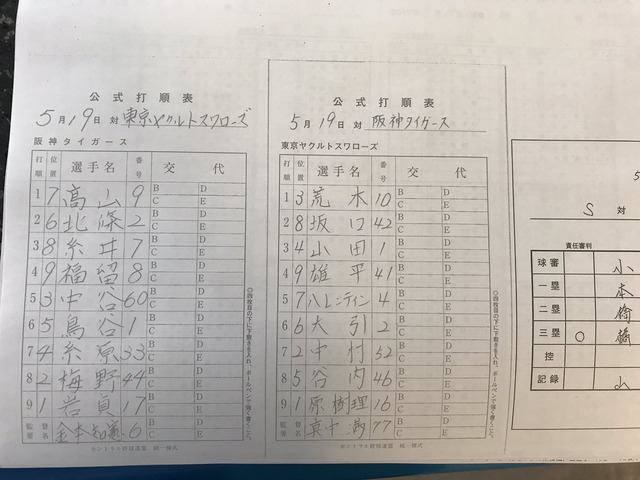 公式打順表
5月19日 対 東京ヤクルトスワローズ
阪神タイガース
打順 位置 選手名 番号 交代
1 7 高山 9 B D C E
2 6 北條 2 B D C E
3 8 糸井 7 B D C E
4 9 福留 8 B D C E
5 3 中谷 60 B D C E
6 5 鳥谷 1 B D C E
7 4 糸原 33 B D C E
8 2 梅野 44 B D C E
9 1 岩貞 17 B D C E
監督 署名 金本知憲 6 B D C E
セントラル野球連盟 統一様式
◎四枚目の下に下敷きを入れ、ボールペンで強く書くこと。
公式打順表
5月19日 対 阪神タイガース
東京ヤクルトスワローズ
打順 位置 選手名 番号 交代
1 3 荒木 10 B D C E
2 8 坂口 42 B D C E
3 4 山田 1 B D C E
4 9 雄平 41 B D C E
5 7 バレンティン 4 B D C E
6 6 大引 2 B D C E
7 2 中村 52 B D C E
8 5 谷内 46 B D C E
9 1 原樹理 16 B D C E
監督 署名 真中満 77 B D C E
セントラル野球連盟 統一様式
◎四枚目の下に下敷きを入れ、ボールペンで強く書くこと。
5
S 対
責任審判
球審 小
一塁 本
二塁
三塁 ○
控
記録 山